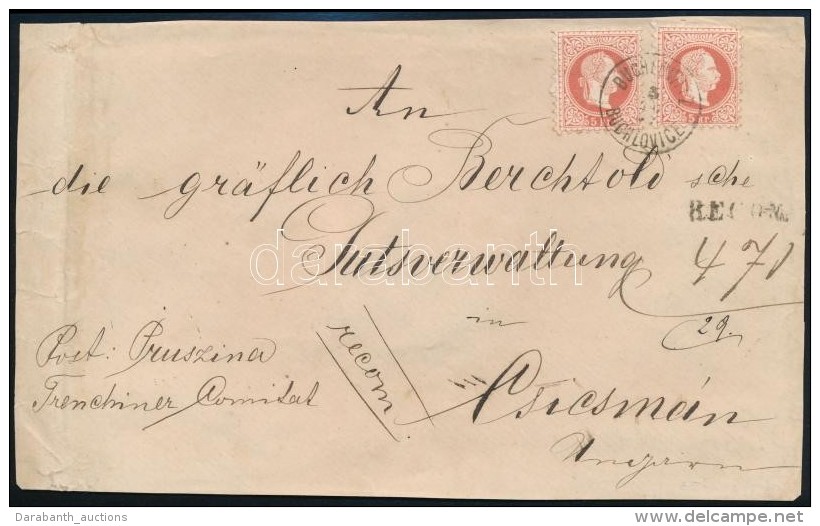 BUCHLOVICE
An
die gräflich Berchtold'sche
RECOM.
Gutsverwaltung 471
29.
in
recom.
Post: Pruszina
Trenchiner Comitat
Csicsmán
Ungarn
darabanth
Darabanth_auctions
delcampe.net